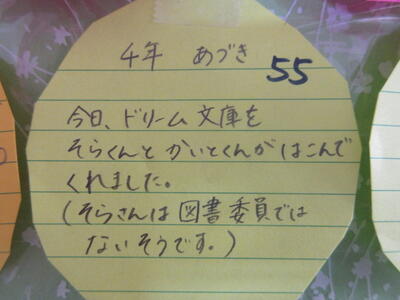 4年 あづき 55
今日、ドリーム文庫を
そらくんとかいとくんがはこんで
くれました。
(そらさんは図書委員では
ないそうです。)